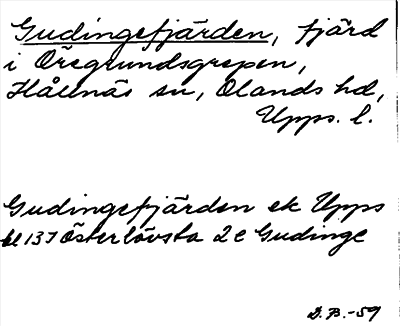 Gudingefjärden, fjärd
i Öregrundsgrepen,
Hållnäs sn, Olands hd,
Upps. l.
Gudingefjärden ek Upps
bl 137 Österlövsta 2 e Gudinge
D.B.-59